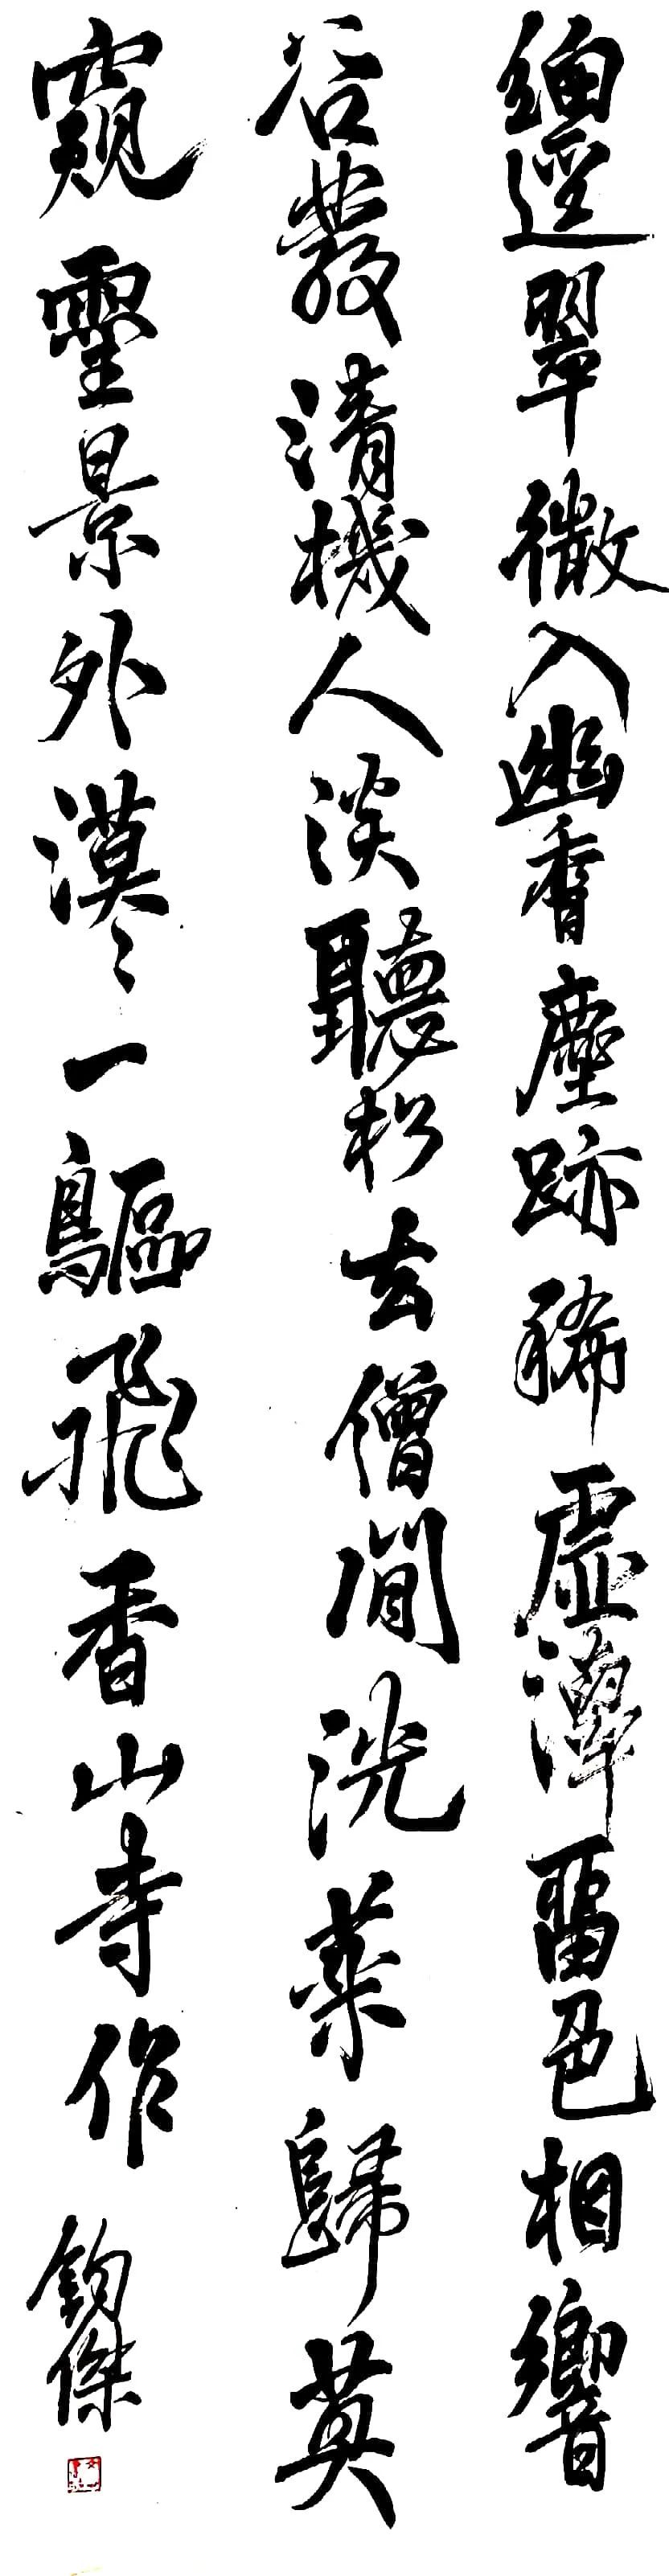 細逕翠微入幽香塵跡稀虛潭留色相響
谷發清機人淡聽松去僧閒洗藥歸莫
窺靈景外漠々一鷗飛香山寺作 鈞傑